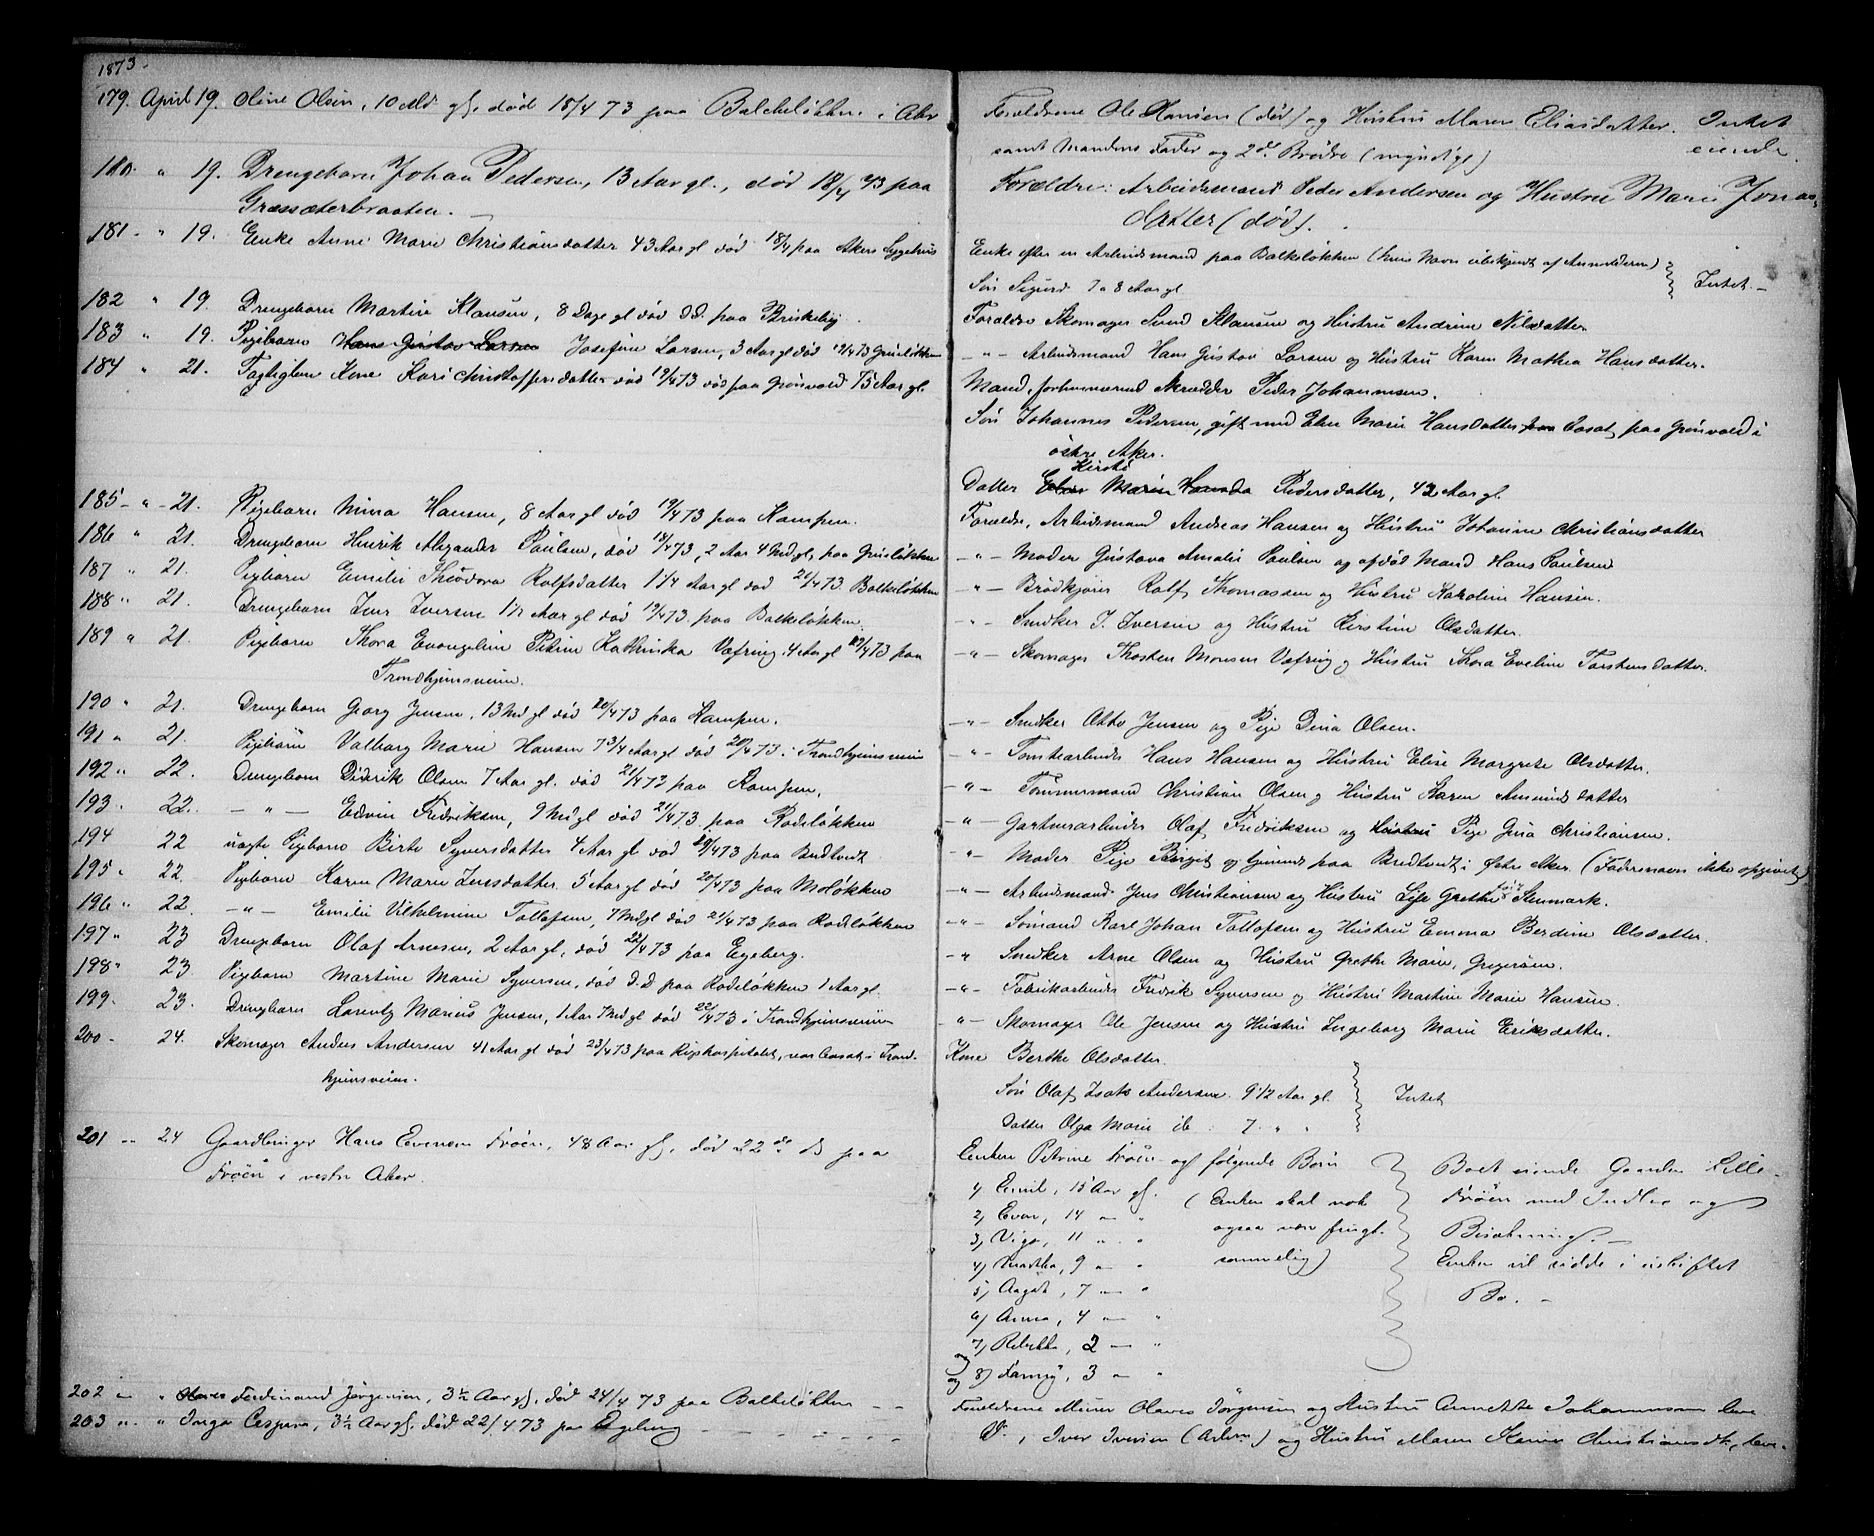 1873.
179. April 19. Oline Olsen, 10 Md gl, død 18/4 73 paa Balkeløkken i Aker
Forældrene Ole Hansen (død) og Hustru Maren Eliasdatter. Intet
samt Mandens Fader og 2de Brødre (myndige) eiende.
180. " 19. Drengebarn Johan Pedersen, 13 Aar gl., død 18/4 73 paa
Græssæterbraaten.
Forældre: Arbeidsmand Peder Andersen og Hustru Marie Jonas-
datter (død).
181. " 19. Enke Anne Marie Christiansdatter 43 Aar gl død 18/4 paa Akers Sygehus
Enke efter en Arbeidsmand paa Balkeløkken (hvis Navn ubekjendt af Anmelderen)
Søn Sigurd 7 a 8 Aar gl Intet. -
182 " 19. Drengebarn Martin Klausen, 8 Dage gl død d.d. paa Briskeby.
Forældre Skomager Klausen og Hustru Andrine Nilsdatter
183 " 19. Pigebarn Hans Gustav Larsen Josefine Larsen, 3 Aar gl død 19/4 73 Grüsløkken
- " - Arbeidsmand Hans Gustav Larsen og Hustru Karen Mathea Hansdatter.
184 " 21. Kone Kari Christoffersdatter død 19/4 73 død paa Grønvold 75 Aar gl
Mand, forhenværend Skrædder Peder Johannesen.
Søn Johannes Pedersen, gift med Elen Marie Hansdatter bosat paa Grønvold i
østre Aker.
Datter Marie Pedersdatter, 42 Aar gl.
185 - " - 21. Pigebarn Mina Hansen, 8 Aar gl død 19/4 73 paa Kampen.
Forældre, Arbeidsmand Andreas Hansen og Hustru Johanne Christiansdatter
186 " 21. Drengebarn Henrik Alexander Paulsen, død 18/4 73, 2 Aar 4 Md gl, paa Grusløkken
- " - Moder Gustava Amalie Paulsen og afdød Mand Hans Paulsen
187 " 21. Pigebarn Emilie Theodora Rolfsdatter 1 1/4 Aar gl død 21/4 73. Balkeløkken
- " - Brødkjører Rolf Thomassen og Hustru Karoline Hansen.
188 " 21. Drengebarn Jens Iversen 1 1/2 Aar gl død 19/4 73. paa Balkeløkken.
- " - Snedker J. Iversen og Hustru Kirstine Olsdatter.
189 " 21. Pigebarn Thora Evangeline Petrine Kathinka Vefring 4 Aar gl 19/4 73 paa
Trondhjemsveien.
- " - Skomager Thosten Monsen Vefring og Hustru Thora Eveline Torstensdatter.
190 " 21. Drengebarn Georg Jensen, 13 Md gl død 20/4 73 paa Kampen.
- " - Snedker Otto Jensen og Pige Dina Olsen.
191 " 21. Pigebarn Valborg Marie Hansen 7 3/4 Aar gl død 20/4 73 i Trondhjemsveien
- " - Tomtearbeider Hans Hansen og Hustru Elise Margrete Olsdatter.
192 " 22. Drengebarn Diderik Olsen 7 Aar gl. død 21/4 73 paa Kampen.
- " - Tømmermand Christian Olsen og Hustru Karen Amundsdatter
193. " 22. - " - Edvin Fredriksen, 9 Md gl død 21/4 73 paa Rodeløkken
- " - Gartnerarbeider Olaf Fredriksen og Hustru Pige Gina Christiansen.
194 22 uægte Pigebarn Birte Syversdatter 4 Aar gl død 20/4 73 paa Bredtvedt
- " Moder Pige Birgit paa Bredtvedt i Østre Aker. (Faderns navn ikke opgivet)
195 " 22. Pigebarn Karen Marie Jensdatter. 5 Aar gl død 20/4 73 paa Moløkken
- " - Arbeidsmand Jens Christiansen og Hustru Lise Grethe Stenmark.
196 " 22. - " - Emilie Vilhelmine Tollofsen, 9 Md gl død 21/4 73 paa Rodeløkken
- " - Sømand Karl Johan Tollofsen og Hustru Emma Berdine Olsdatter.
197 " 23 Drengebarn Olaf Arnesen, 2 Aar gl, død 22/4 73 paa Egeberg.
- " Snedker Arne Olsen og Hustru Grethe Marie, Gregersen.
198 " 23 Pigebarn Martine Marie Syversen, død d.d. paa Rodeløkken 1 Aar gl.
- " - Fabrikarbeider Fredrik Syversen og Hustru Martine Marie Hansen.
199. " 23. Drengebarn Lorentz Marius Jensen, 1 Aar 7 Md gl død 22/4 73 i Trondhjemsveien
- " - Skomager Ole Jensen og Hustru Ingeborg Marie Eriksdatter.
200 - 24. Skomager Anders Andersen 41 Aar gl død 23/4 73 paa Rigshospitalet, var bosat i Trond-
hjemsveien.
Kone Berthe Olsdatter.
Søn Olaf Isak Andersen 9 1/2 Aar gl. Intet
Datter Olga Marie ib : 7. " "
201 " 24 Gaardbruger Hans Evensen Frøen, 48 Aar gl, død 22de ds paa
Frøen i vestre Aker.
Enken Petrine Frøen og følgende Børn
1) Emil, 15 Aar gl. (Enken skal nok
2) Even, 14 - " ogsaa være frugt-
3) Vigo, 11 " " sommelig)
4) Martha, 9 - "
5) Aagot, 7 - "
6) Anna, 4 - "
7) Rebekka, 2 - "
og 8) Fanny, 3 - "
Boet eiende Gaarden Lille-
Frøen med Indbo og
Besætning. -
Enken vil sidde i uskiftet
Bo. -
202 " " Olaves Ferdinand Jørgensen, 3 1/2 Aar gl, død 24/4 73 paa Balkeløkken - -
Forældrene Murer Olaves Jørgensen og Hustru Annette Johannesen leve
203 " " Inga Caspara, 3 1/2 Aar gl. død 22/4 73 paa Egeberg - - - - - -
Do., Iver Iversen (Arbm.) og Hustru Maren Karine Christiansdtr, leve.